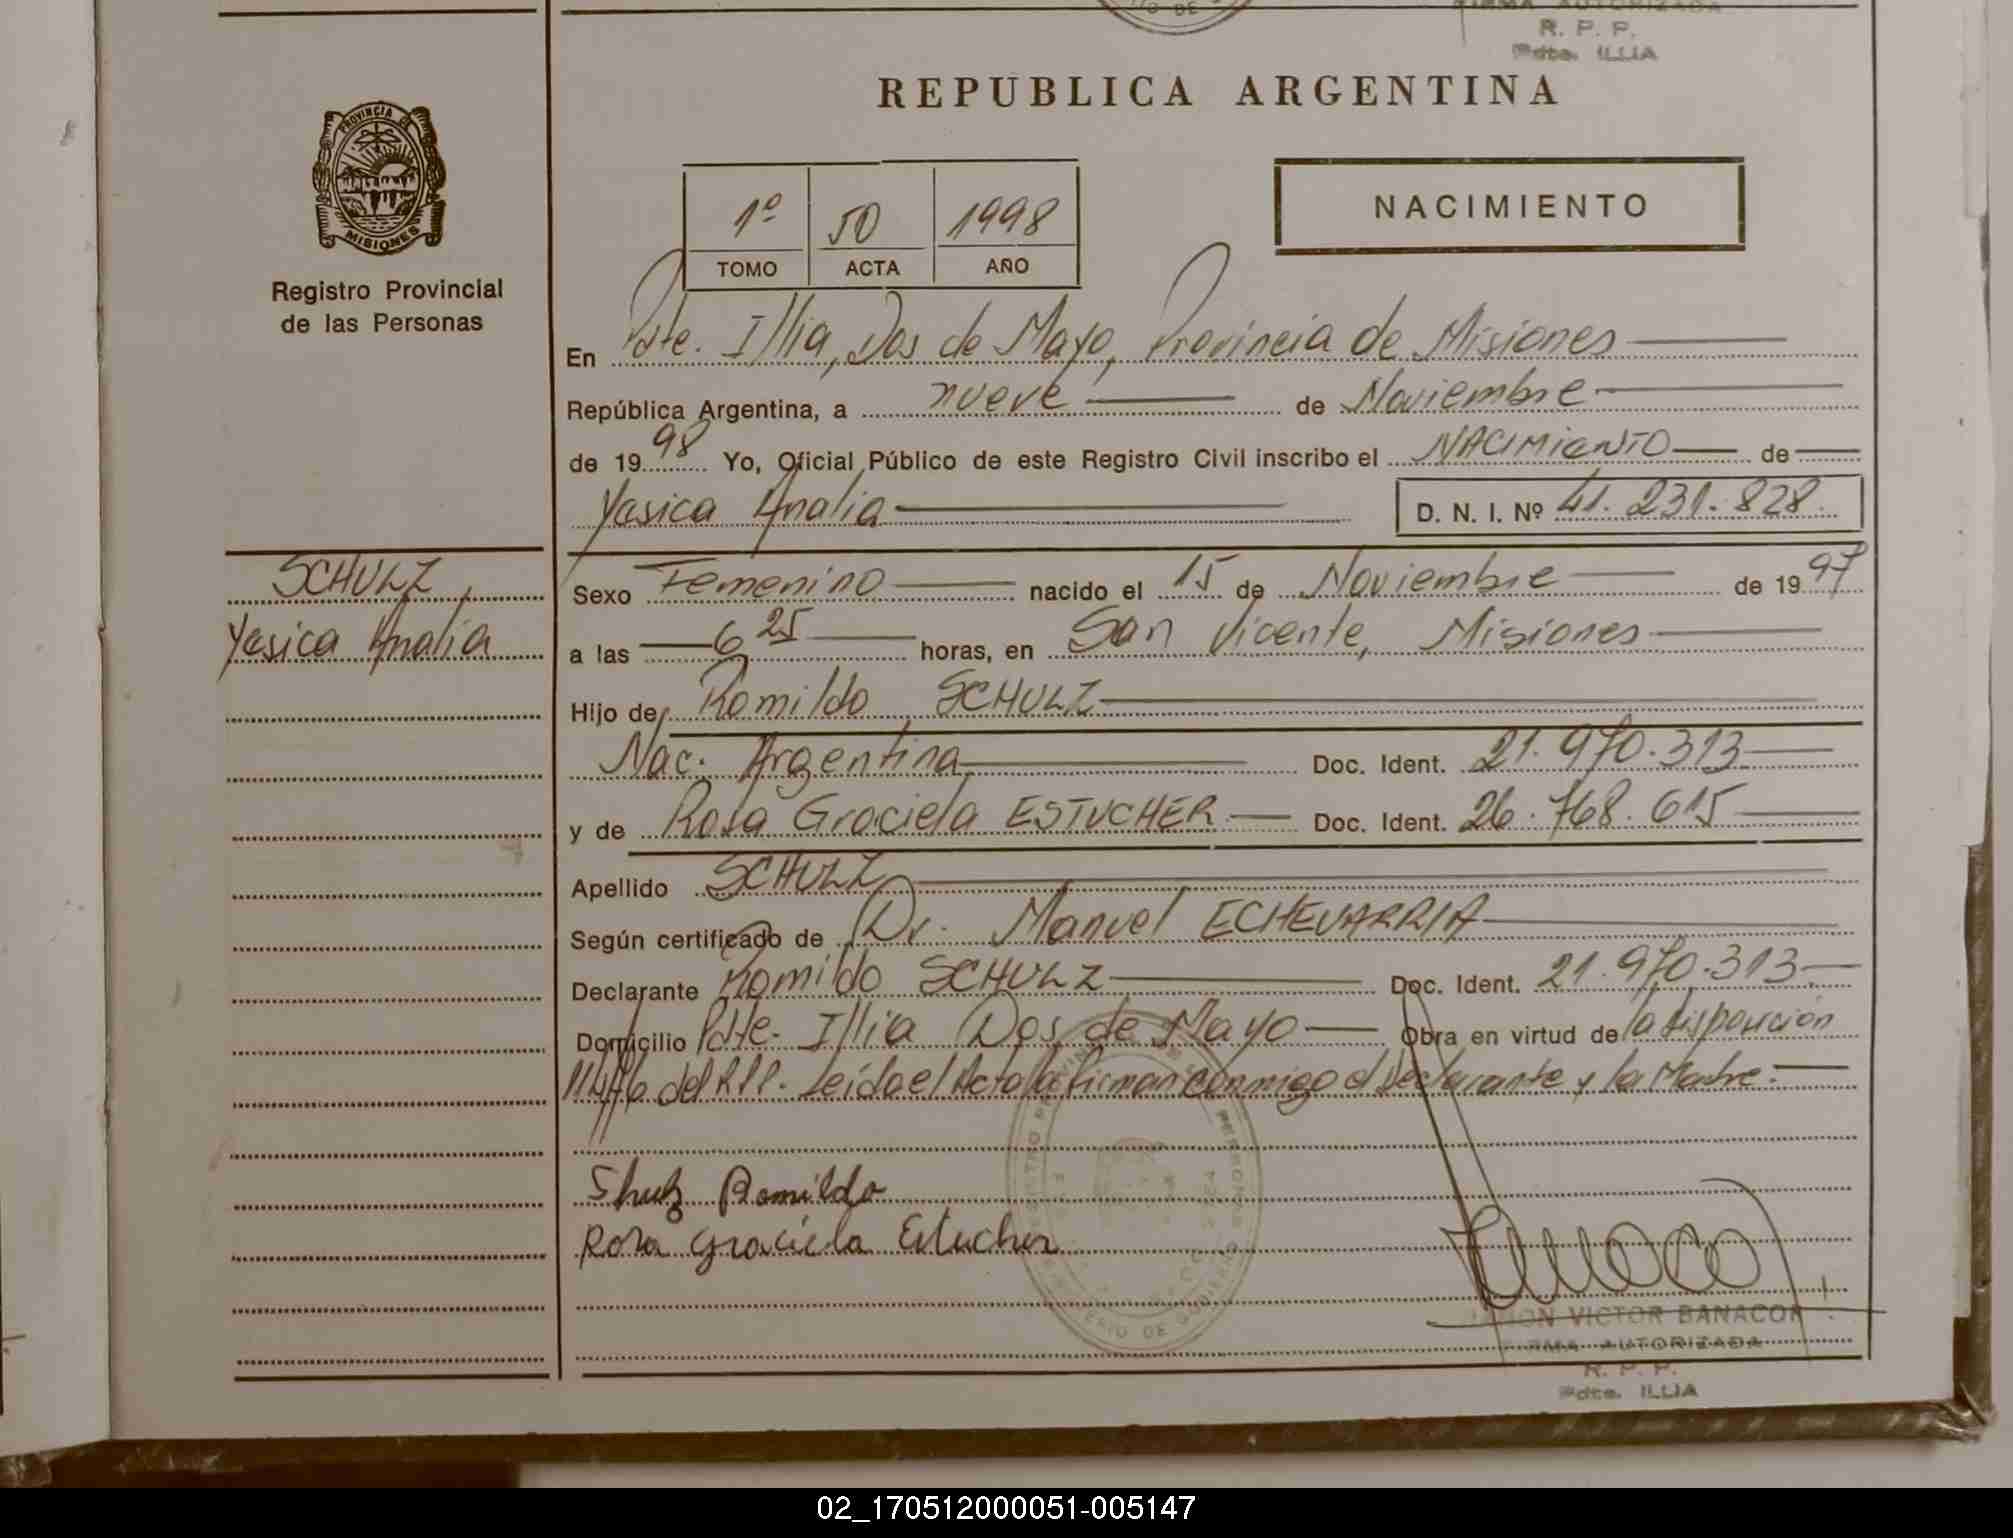 FIRMA AUTORIZADA
R. P. P.
Pdte. ILLIA
REPUBLICA ARGENTINA
PROVINCIA DE
MISIONES
Registro Provincial
de las Personas
1º 50 1998
TOMO ACTA AÑO
NACIMIENTO
En Pdte. Illia, Dos de Mayo, Provincia de Misiones
República Argentina, a nueve de Noviembre
de 1998 Yo, Oficial Público de este Registro Civil inscribo el NACIMIENTO de
Yesica Analia D. N. I. Nº 41.231.828
SCHULZ
Yesica Analia
Sexo Femenino nacido el 15 de Noviembre de 1997
a las 6 25 horas, en San Vicente, Misiones
Hijo de Romildo SCHULZ
Nac. Argentina Doc. Ident. 21.970.313
y de Rosa Graciela ESTUCHER Doc. Ident. 26.768.615
Apellido SCHULZ
Según certificado de Dr. Manuel ECHEVARRIA
Declarante Romildo SCHULZ Doc. Ident. 21.970.313
Domicilio Pdte. Illia Dos de Mayo Obra en virtud de la disposición
del R.P.P. Leída el Acta la firman conmigo el Declarante y la Madre.
Shulz Romildo
Rosa Graciela Estucher
VICTOR BANACOR
FIRMA AUTORIZADA
R. P. P.
Pdte. ILLIA
02_170512000051-005147